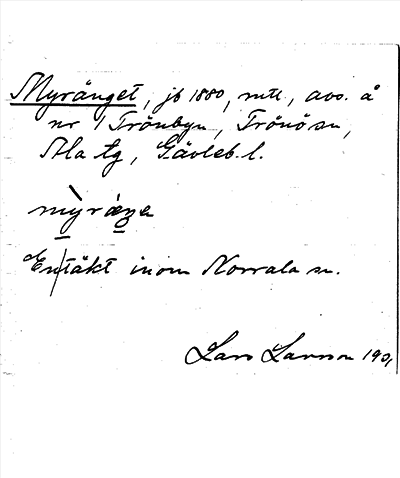 Myränget, jb 1880, mtl, avs. å
nr 1 Trönbyn, Trönö sn,
Ala tg, Gävleb. l.
mỳræŋe
Entäkt inom Norrala sn.
Lars Larsson 190,